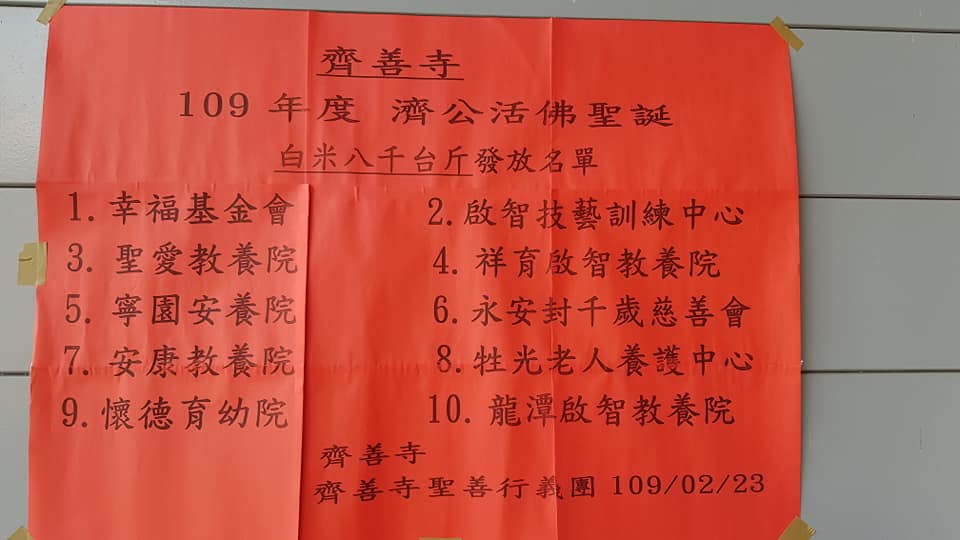 齊善寺
109 年度 濟公活佛聖誕
白米八千台斤發放名單
1. 幸福基金會 2. 啟智技藝訓練中心
3. 聖愛教養院 4. 祥育啟智教養院
5. 寧園安養院 6. 永安封千歲慈善會
7. 安康教養院 8. 牲光老人養護中心
9. 懷德育幼院 10. 龍潭啟智教養院
齊善寺
齊善寺聖善行義團 109/02/23